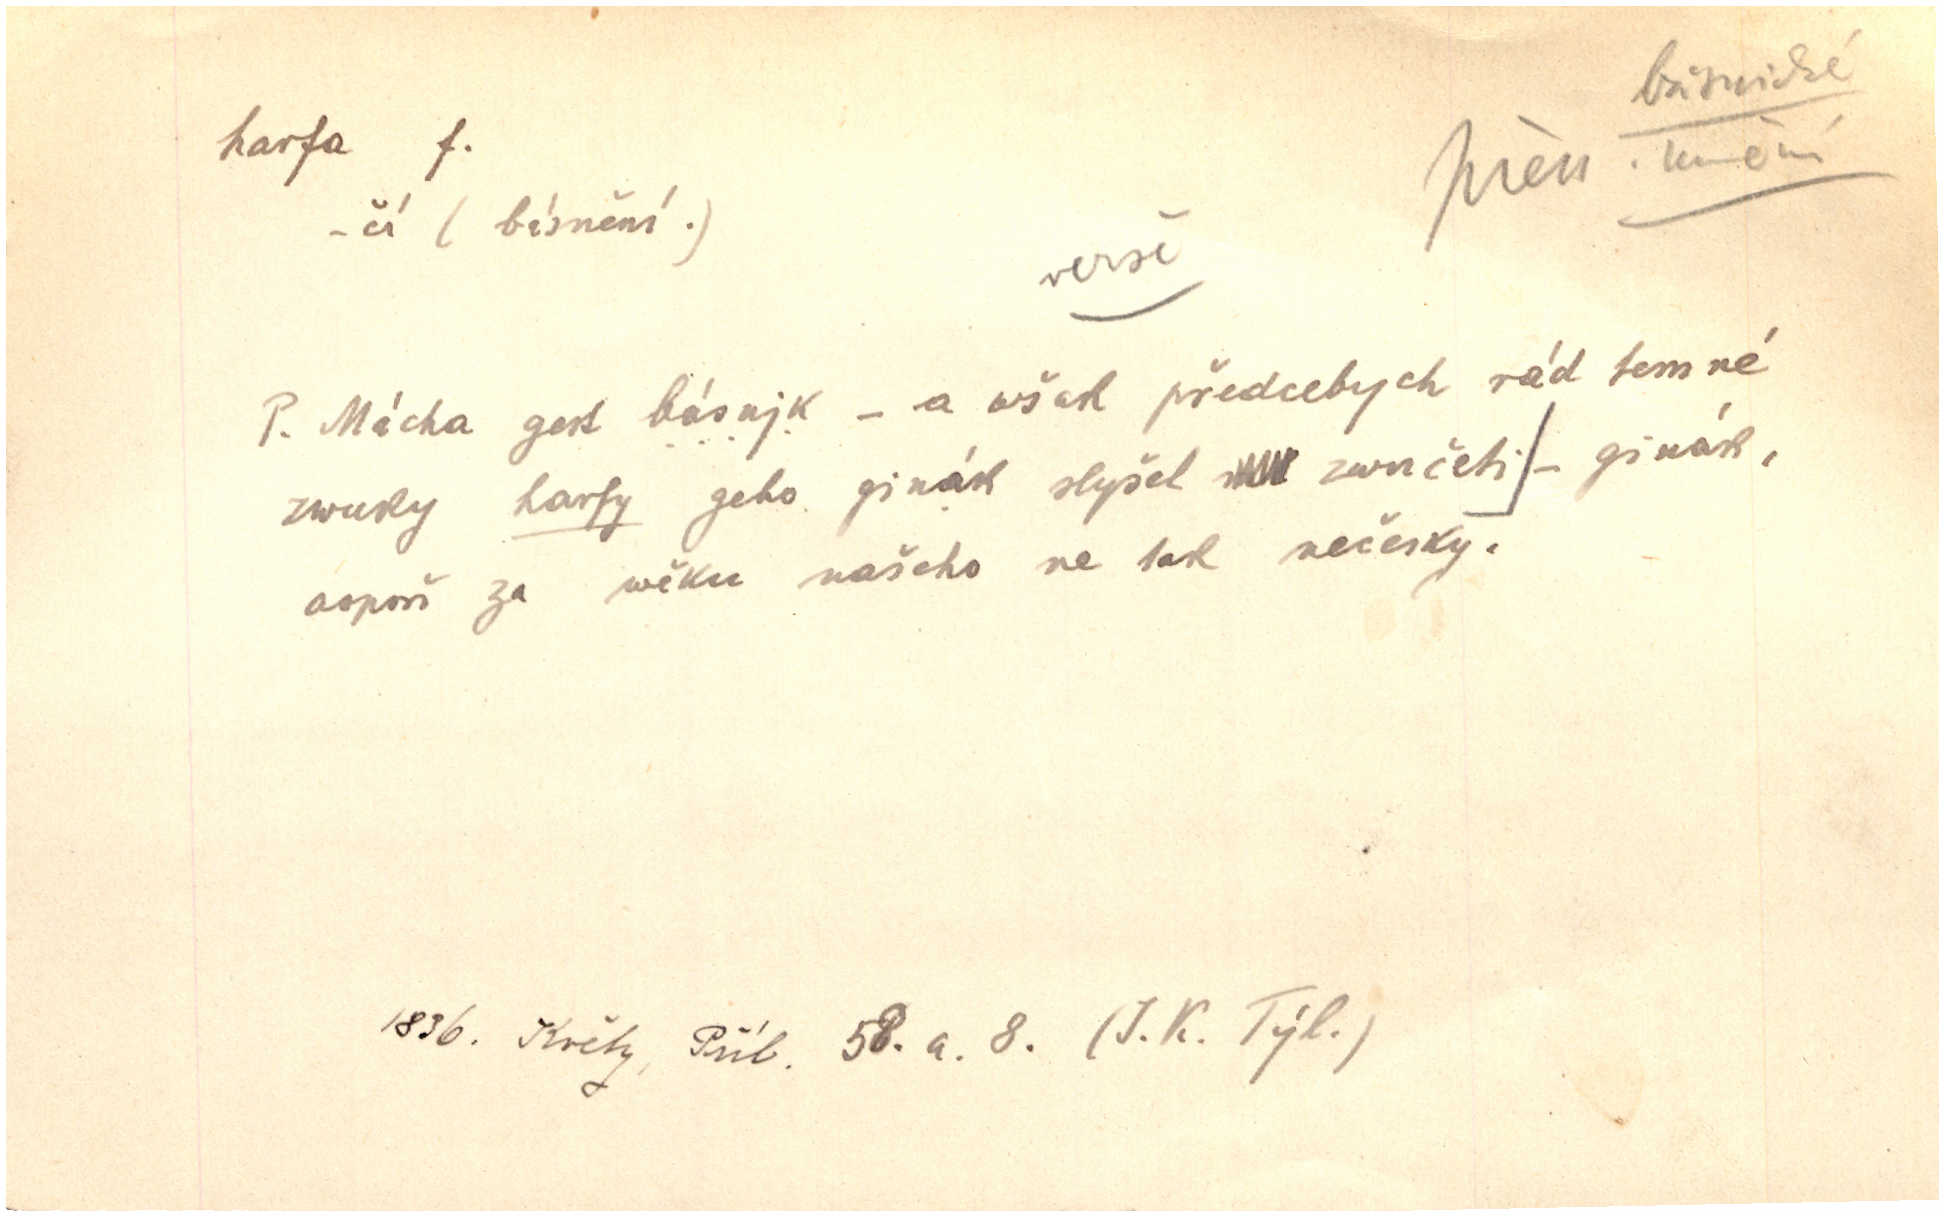 básnické
harfa f.
přen. umění
-čí ( básnění.)
verše
P. Mácha gest básnjk - a však předcebych rád temné
zwuky harfy geho ginák slyšel zwučeti - ginák,
aspoň za wěku našeho ne tak nečesky.
1836. Květy, Příl. 58. a. 8. (J.K. Týl.)